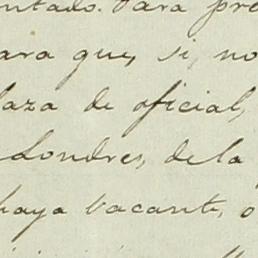 ntado. Para pre
para que, si, no
laza de oficial,
Londres, de la
haya vacante, o